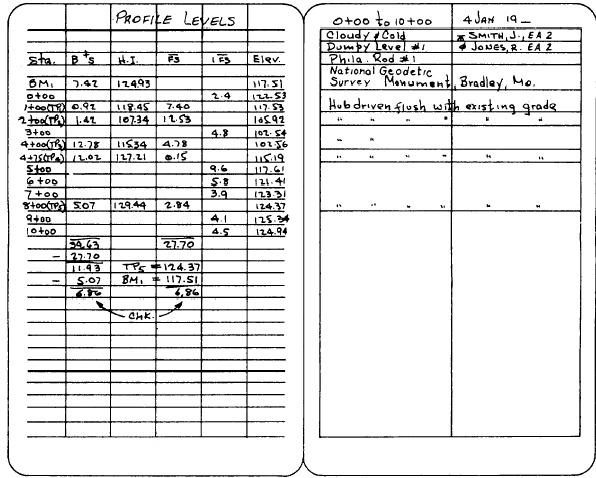 PROFILE LEVELS
Sta. B+s H.I. FS IFS Elev.
BM1 7.42 124.93 117.51
0+00 2.4 122.53
1+00(TP1) 0.92 118.45 7.40 117.53
2+00(TP2) 1.42 107.34 12.53 105.92
3+00 4.8 102.54
4+00(TP3) 12.78 115.34 4.78 102.56
4+75(TP4) 12.02 127.21 0.15 115.19
5+00 9.6 117.61
6+00 5.8 121.41
7+00 3.9 123.31
8+00(TP5) 5.07 129.44 2.84 124.37
9+00 4.1 125.34
10+00 4.5 124.94
39.63 27.70
- 27.70
11.93 TP5 = 124.37
- 5.07 BM1 = 117.51
6.86 6.86
CHK.
0+00 to 10+00 4 JAN 19_
Cloudy & Cold SMITH, J., EA 2
Dumpy Level #1 JONES, R. EA 2
Phila. Rod #1
National Geodetic
Survey Monument, Bradley, Mo.
Hub driven flush with existing grade
" " " " " "
" "
" " " " " "
" " " " " "